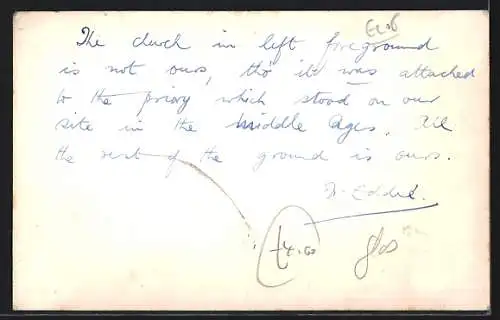 GLOS
The church in left foreground
is not ours, tho' it was attached
to the priory which stood on our
site in the Middle Ages. All
the rest of the ground is ours.
£4.50 glos